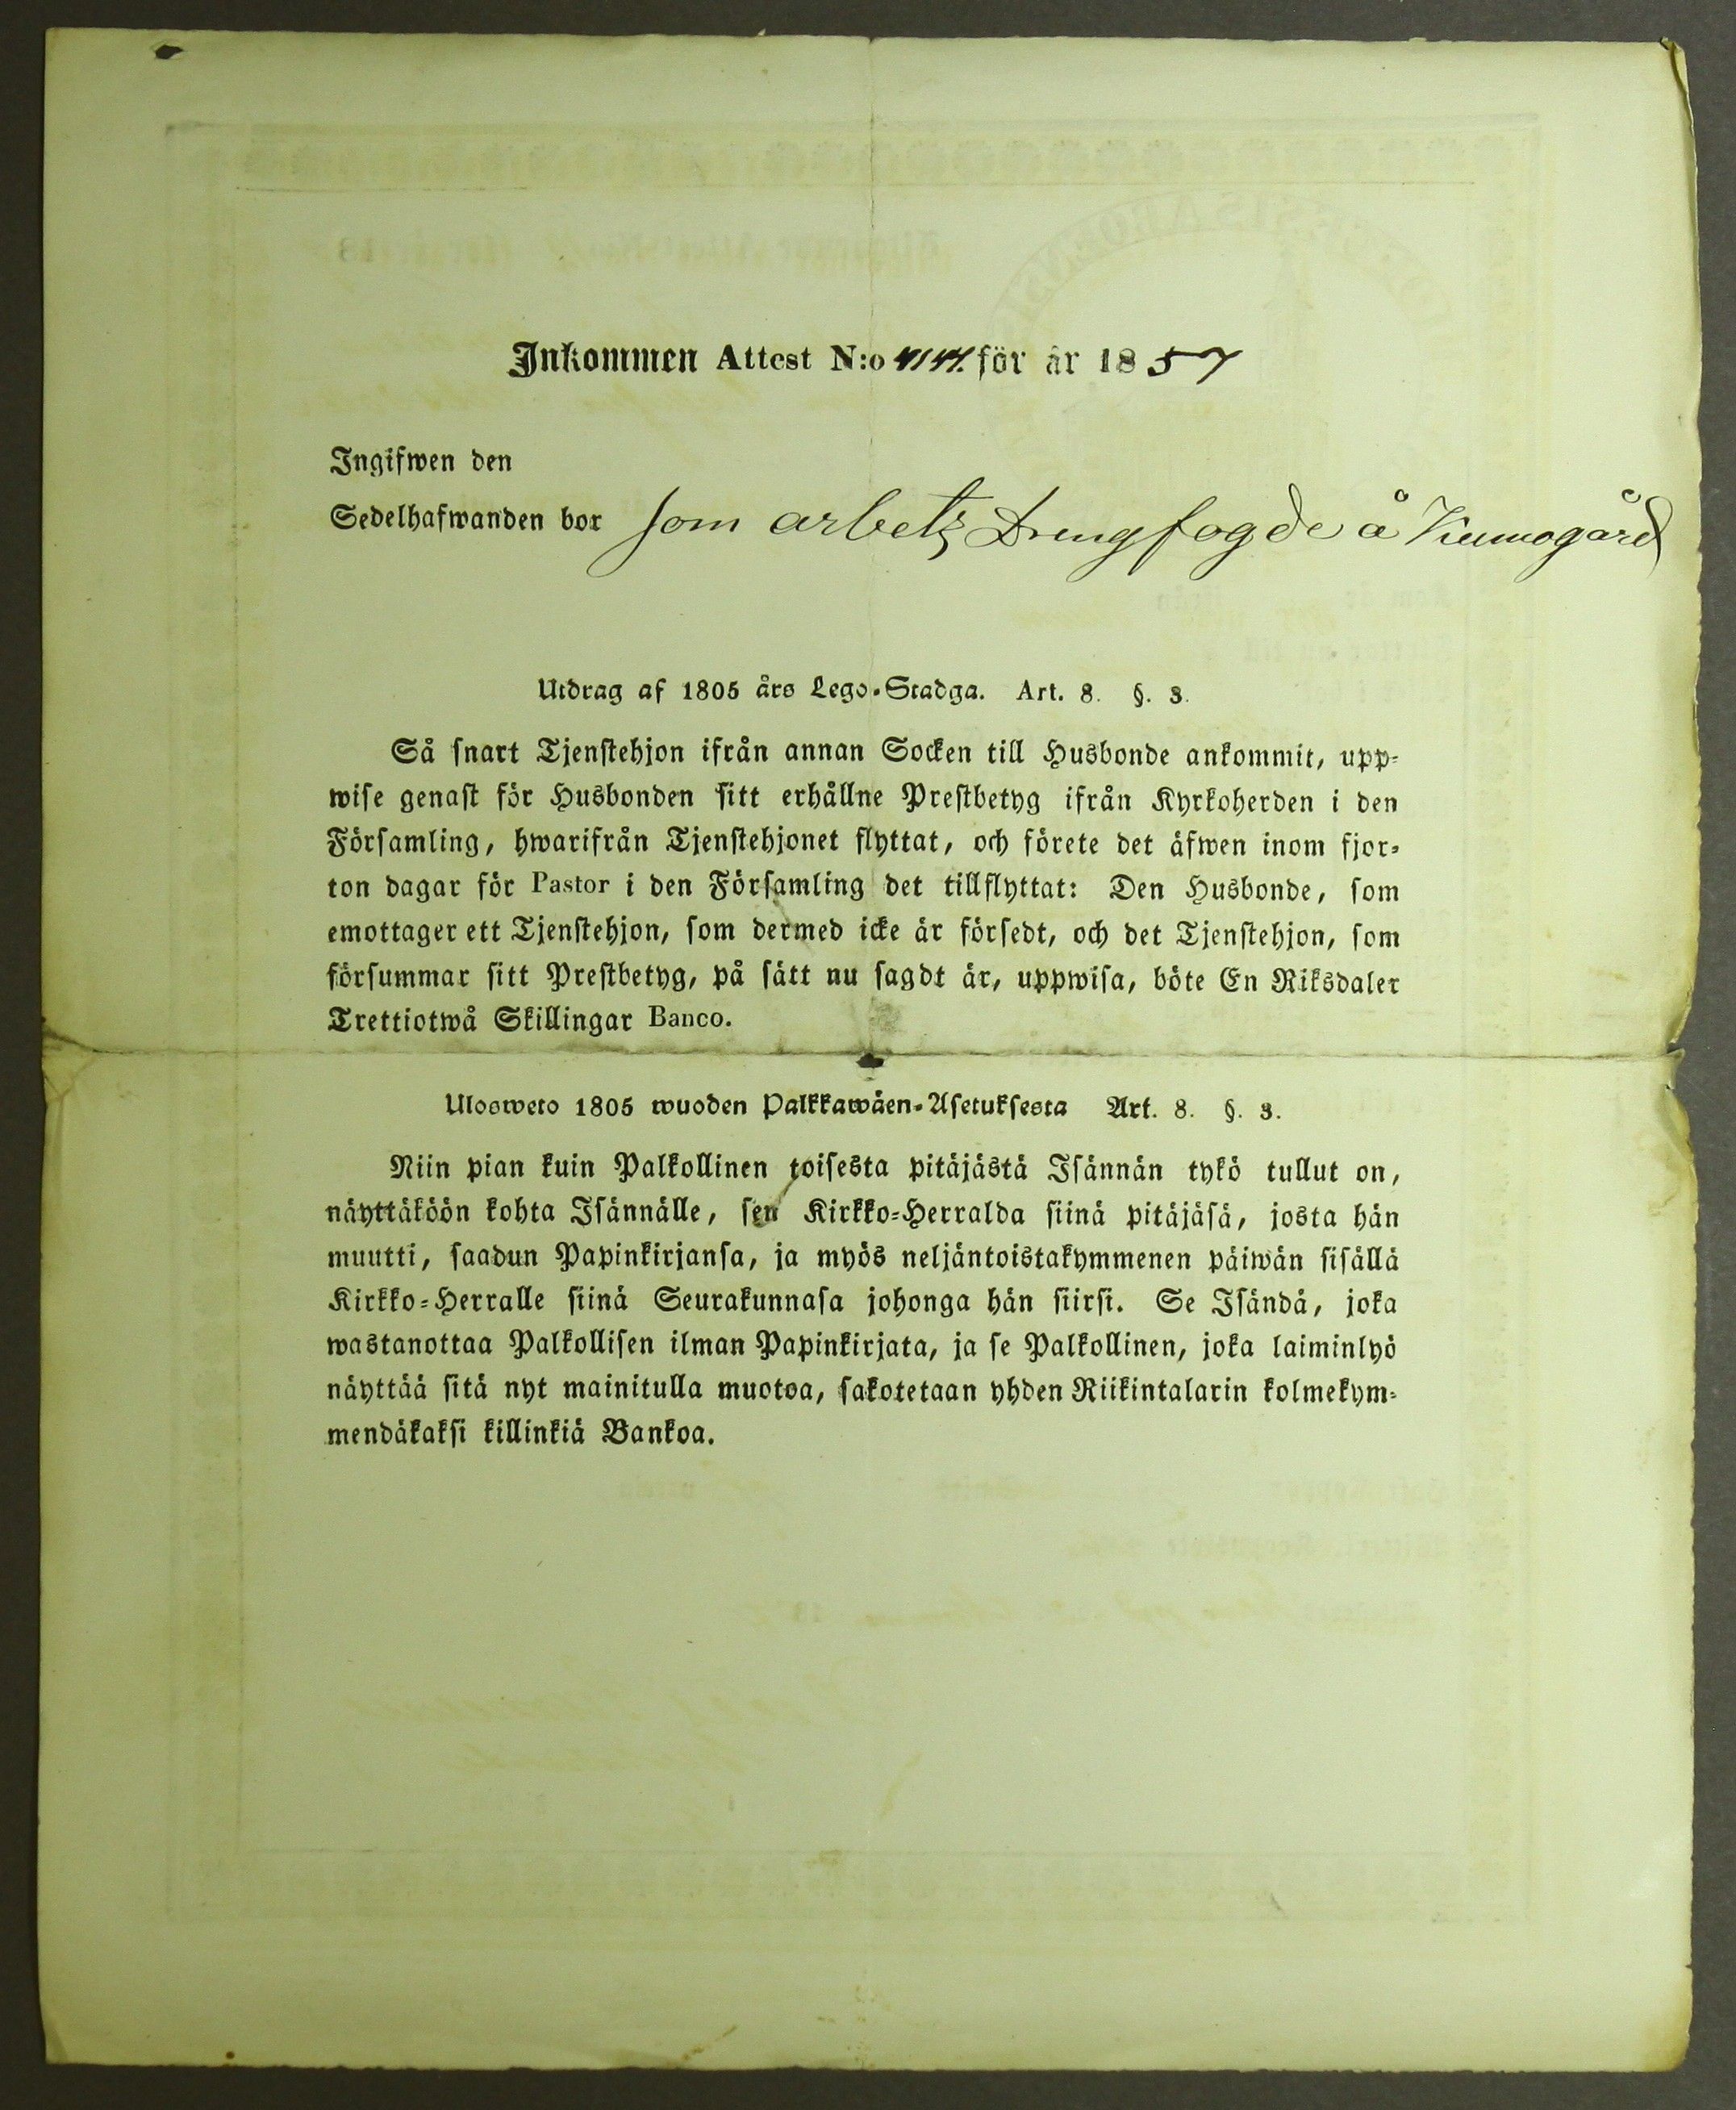 Inkommen Attest N:o för år 1857
Ingifwen den
Sedelhafwanden bor som arbets Drengfogde å Kumogård
Utdrag af 1805 års Lego-Stadga. Art. 8. §. 3.
Så snart Tjenstehjon ifrån annan Socken till Husbonde ankommit, upp-
wise genast för Husbonden sitt erhållne Prestbetyg ifrån Kyrkoherden i den
Församling, hwarifrån Tjenstehjonet flyttat, och förete det äfwen inom fjor-
ton dagar för Pastor i den Församling det tillflyttat: Den Husbonde, som
emottager ett Tjenstehjon, som dermed icke är försedt, och det Tjenstehjon, som
försummar sitt Prestbetyg, på sätt nu sagdt är, uppwisa, böte En Riksdaler
Trettiotwå Skillingar Banco.
Ulosweto 1805 wuoden Palkkawäen-Asetuksesta Art. 8. §. 3.
Niin pian kuin Palkollinen toisesta pitäjästä Isännän tykö tullut on,
näyttäköön kohta Isännälle, sen Kirkko-Herralda siinä pitäjäsä, josta hän
muutti, saadun Papinkirjansa, ja myös neljäntoistakymmenen päiwän sisällä
Kirkko-Herralle siinä Seurakunnasa johonga hän siirsi. Se Isändä, joka
wastanottaa Palkollisen ilman Papinkirjata, ja se Palkollinen, joka laiminlyö
näyttää sitä nyt mainitulla muotoa, sakotetaan yhden Riikintalarin kolmekym-
mendäkaksi killinkiä Bankoa.